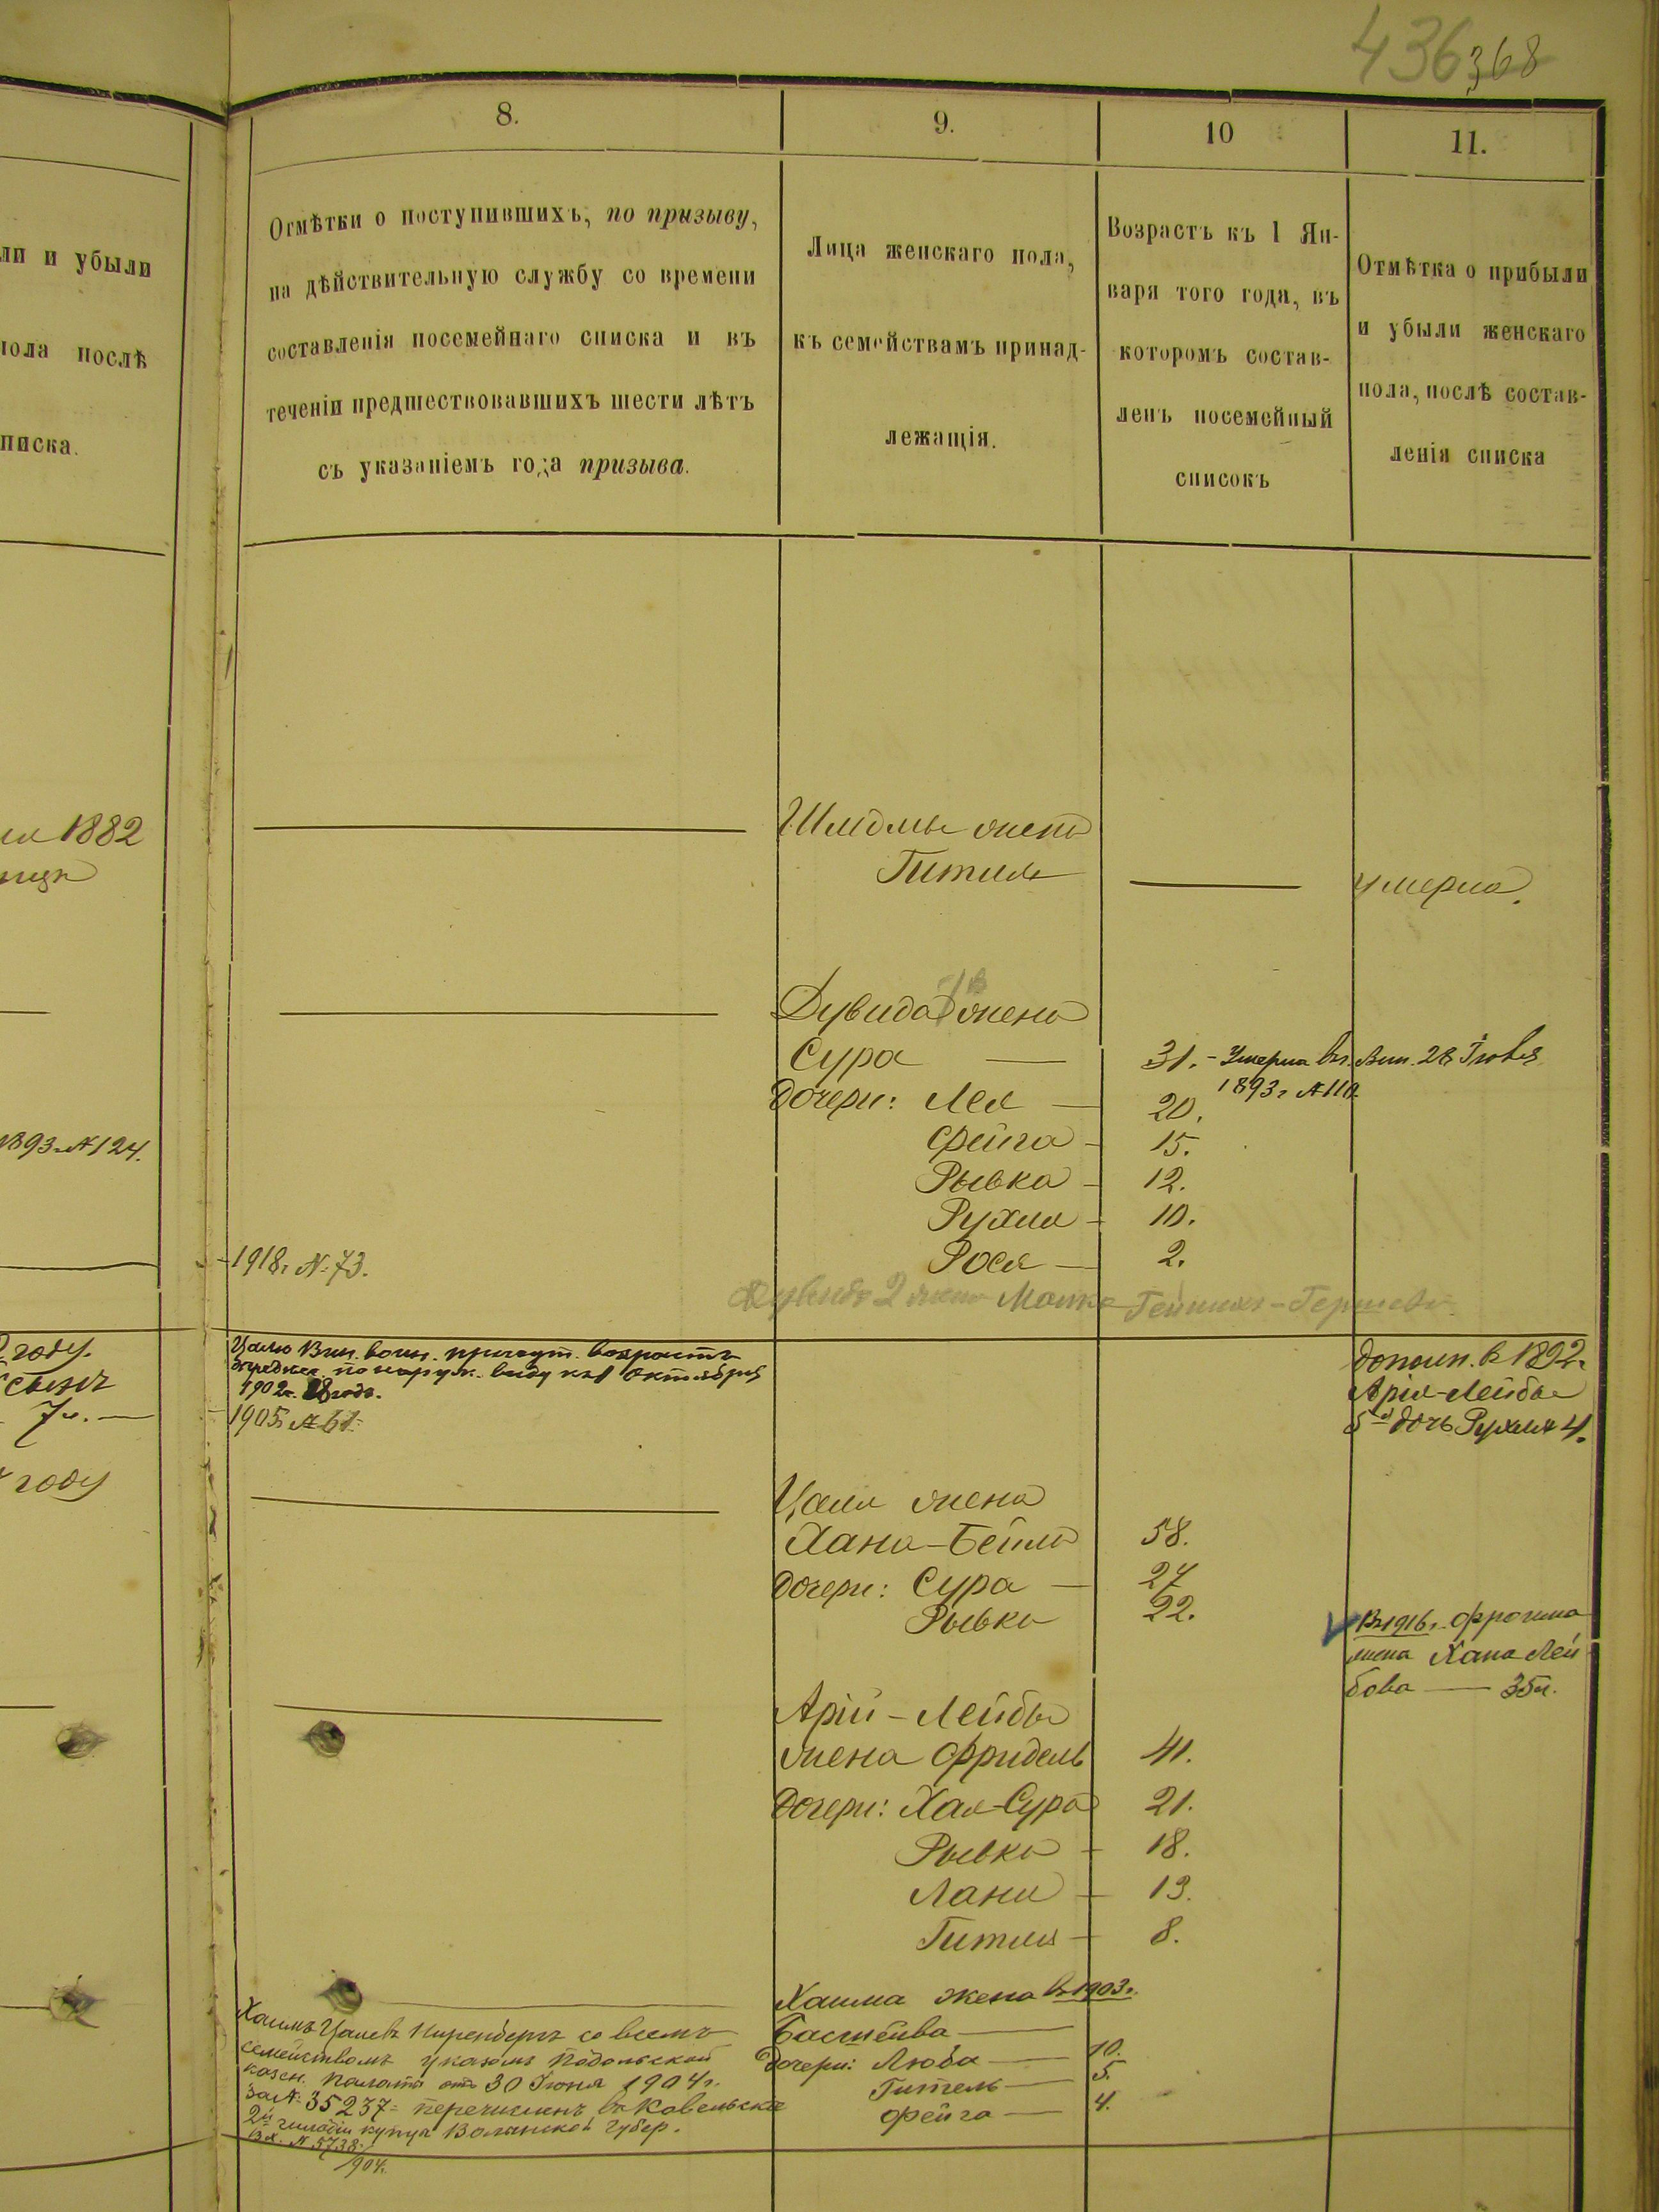 436 368
8.
9.
10
11.
ли и убыли
пола послѣ
писка.
Отмѣтки о поступившихъ, по призыву,
на дѣйствительную службу со времени
составленія посемейнаго списка и въ
теченіи предшествовавшихъ шести лѣтъ
съ указаніемъ года призыва.
Лица женскаго пола,
къ семействамъ принад-
лежащія.
Возрастъ къ 1 Ян-
варя того года, въ
которомъ состав-
ленъ посемейный
списокъ
Отмѣтка о прибыли
и убыли женскаго
пола, послѣ состав-
ленія списка
1882
Шлдмы жена
Гитля — умерла.
Дувида жена
Сура — 31. - Умерла въ Вин. 28 Іюля
1893 г № 110.
дочери: Лея — 20.
Фейга - 15.
1893 № 124.
Рывка - 12.
Рухля - 10.
Рося — 2.
1918 г. № 73.
Дувида 2 жена Малка Гершева
году.
сынъ
7 л. —
году
Цалю Вин. воин. присут. возрастъ
опредѣлен. по наруж. виду къ 1 Октября
1902 г. 18 годъ.
1905 г. № 61.
дополн. въ 1892 г.
Арія-Лейбы
5я дочь Рухля 4.
Цаля жена
Хана-Бейла 58.
дочери: Сура — 27
Рывка 22.
Въ 1916 г. Фроима
жена Хана Лей
бова — 35 л.
Арій-Лейбы
жена Фридель 41.
дочери: Хая-Сура 21.
Рывка - 18.
Лани - 13.
Гитля - 8.
Хаима жена въ 1903 г.
Басшейва —
дочери: Люба — 10.
Гитель — 5.
Фейга — 4.
Хаимъ Цалевъ Ниренбергъ со всемъ
семействомъ указомъ Подольской
казен. палаты отъ 30 Іюня 1904 г.
за № 35237 = перечисленъ въ Ковельскіе
2й гильдіи купцы Волынской губер.
Вх. № 5738
/904.